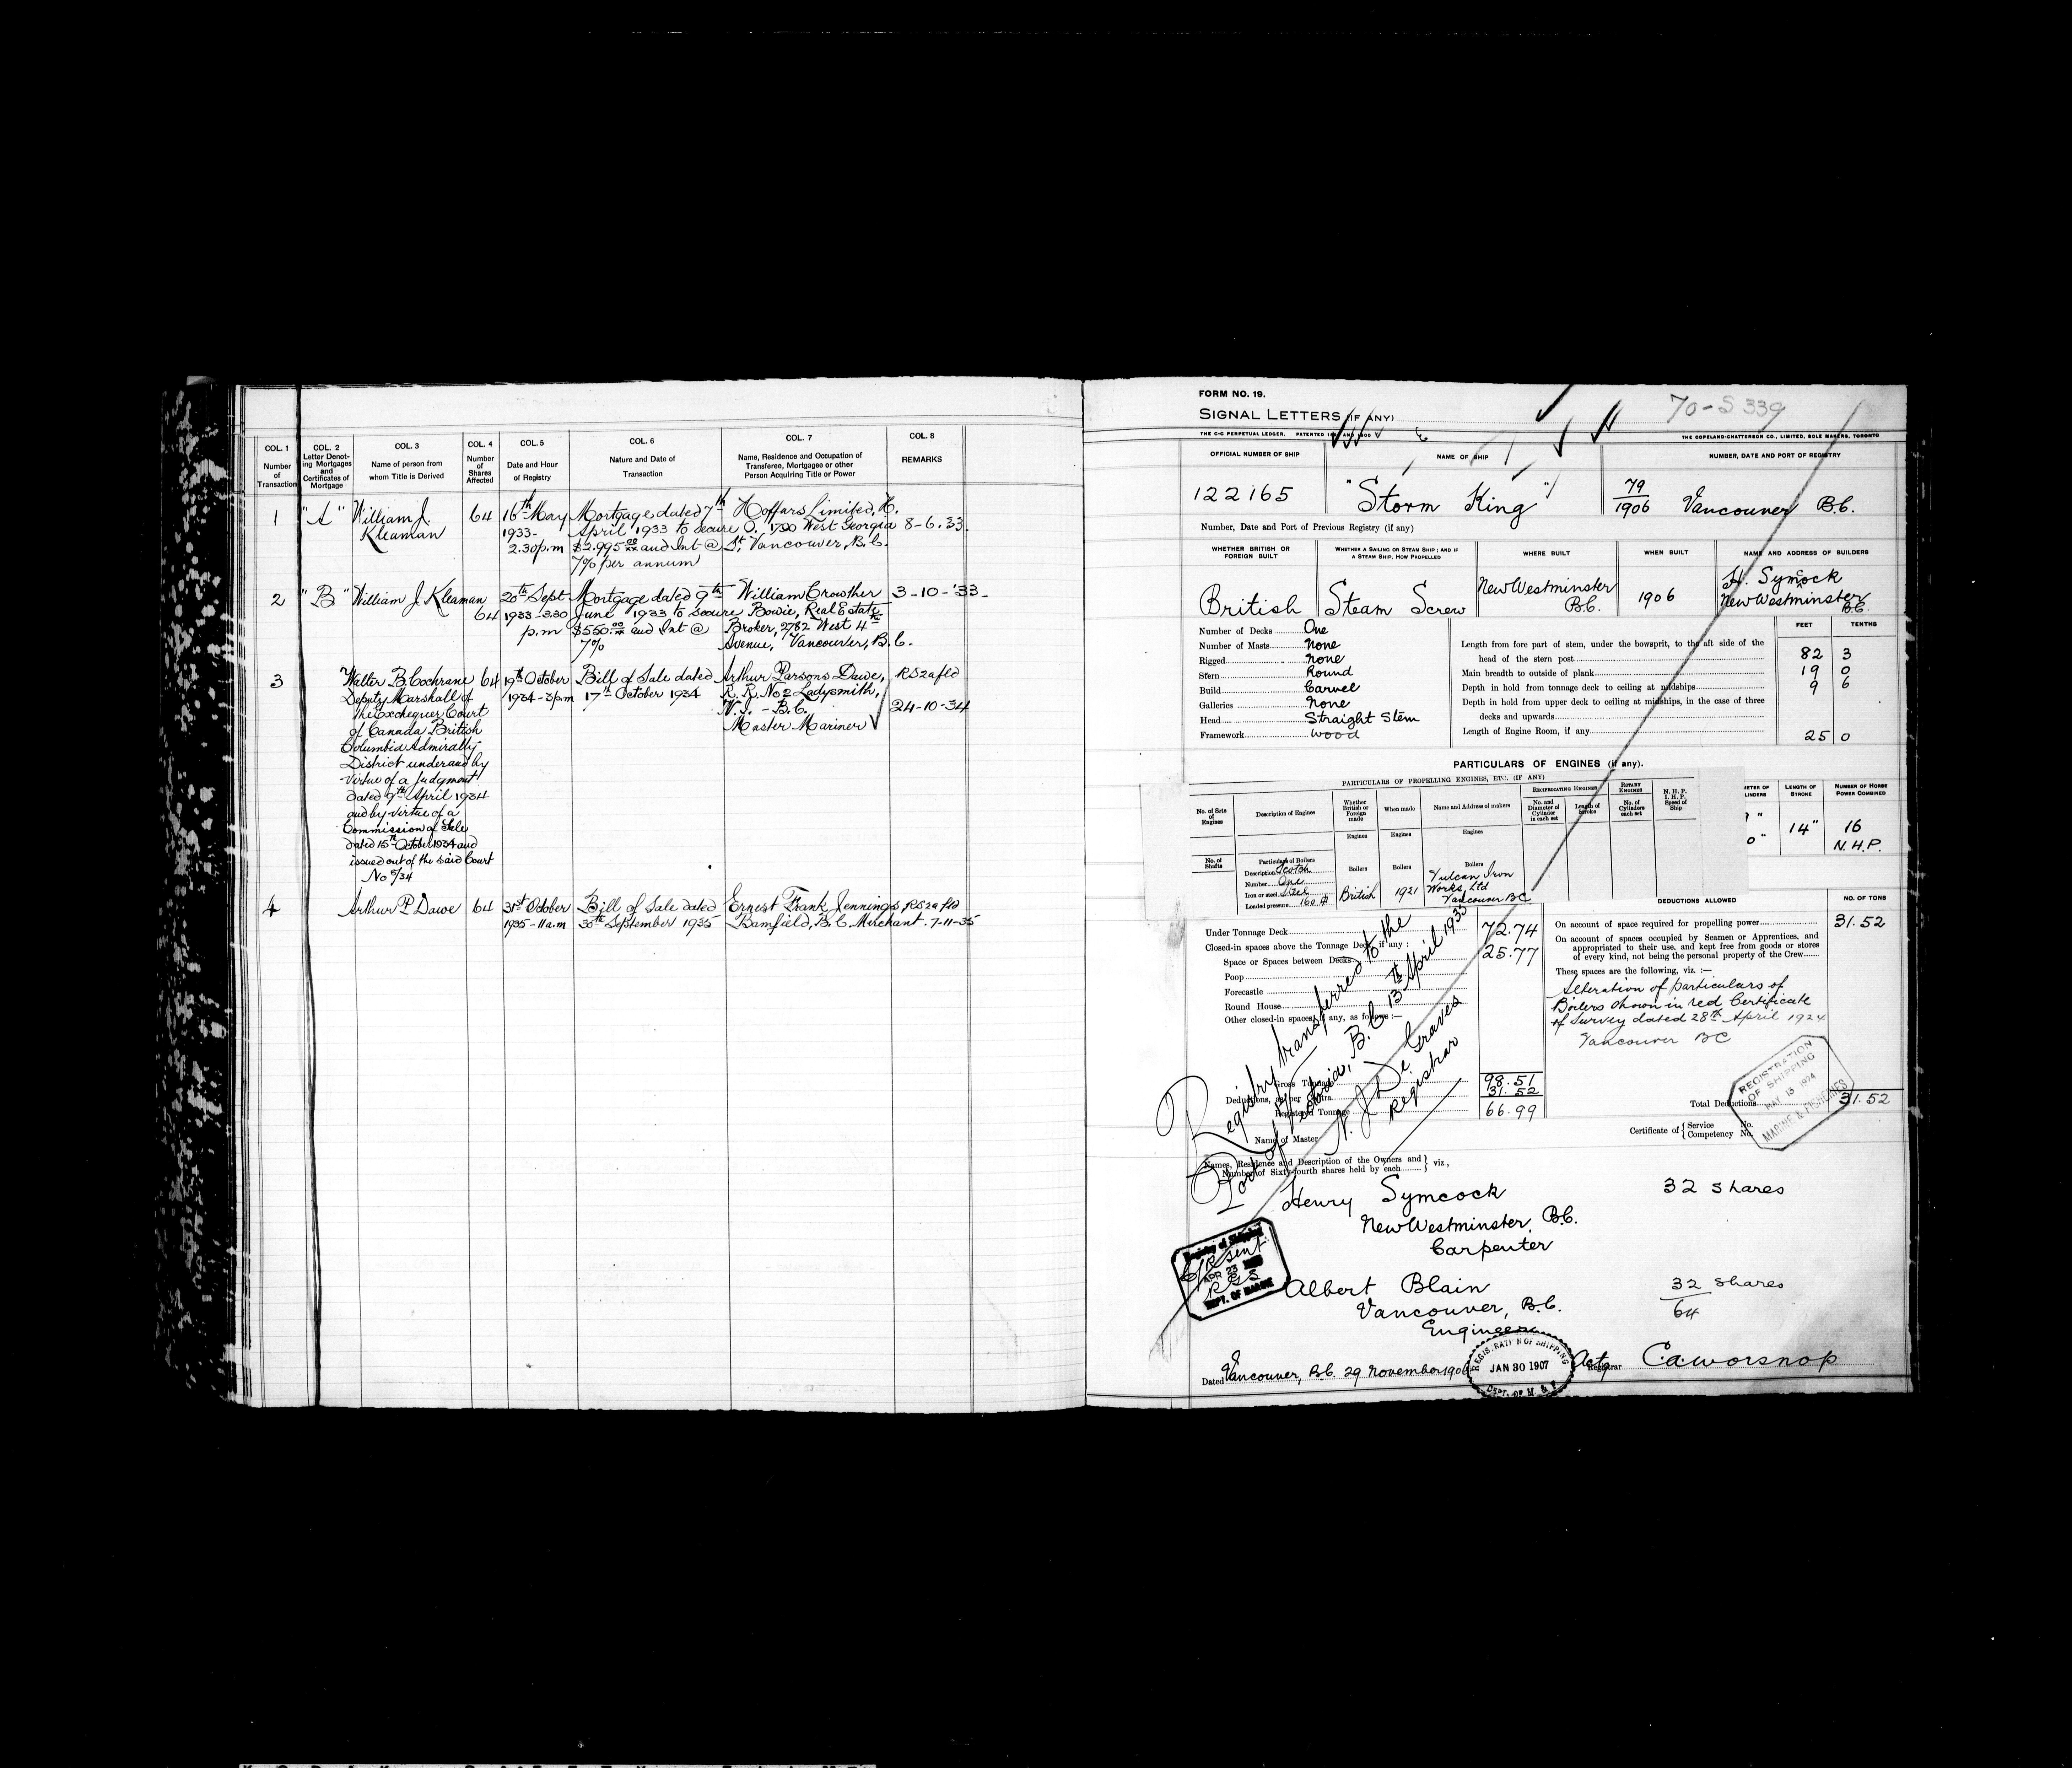 COL. 1
Number
of
Transaction
COL. 2
Letter Denot-
ing Mortgages
and
Certificates of
Mortgage
COL. 3
Name of person from
whom Title is Derived
COL. 4
Number
of
Shares
Affected
COL. 5
Date and Hour
of Registry
COL. 6
Nature and Date of
Transaction
COL. 7
Name, Residence and Occupation of
Transferee, Mortgagee or other
Person Acquiring Title or Power
COL. 8
REMARKS
1
"A"
William J.
Kleaman
64
16th May
1933-
2.30p.m
Mortgage dated 7th
April 1933 to secure
$2.995 00/xx and Int @
7% per annum
Hoffars Limited, H.
O. 1790 West Georgia
St, Vancouver, B.C.
8-6.33.
2
"B"
William J. Kleaman
64
20th Sept
1933-3.30
p.m
Mortgage dated 9th
June 1933 to secure
$550.00/xx and Int @
7%
William Crowther
Bowie, Real Estate
Broker, 2782 West 4th
Avenue, Vancouver, B.C.
3-10-'33-
3
Walter B. Cochrane
Deputy Marshall of
the Exchequer Court
of Canada British
Columbia Admiralty
District under and by
virtue of a Judgment
dated 9th April 1934
and by virtue of a
Commission of Sale
dated 15th October 1934 and
issued out of the said Court
No 5/34
64
19th October
1934-3pm
Bill of Sale dated
17th October 1934
Arthur Parsons Dawe,
R. R. No 2 Ladysmith,
V.I. - B.C.
Master Mariner
RS2a fld
24-10-34
4
Arthur P. Dawe
64
31st October
1935-11a.m
Bill of Sale dated
30th September 1935
Ernest Frank Jennings,
Bamfield, B.C. Merchant.
RS2a fld
7-11-35
FORM NO. 19.
70-S 339
SIGNAL LETTERS (IF ANY)
THE C-C PERPETUAL LEDGER.
THE COPELAND-CHATTERSON CO., LIMITED, SOLE MAKERS, TORONTO
OFFICIAL NUMBER OF SHIP
122165
NAME OF SHIP
"Storm King"
NUMBER, DATE AND PORT OF REGISTRY
79
1906
Vancouver B.C.
Number, Date and Port of Previous Registry (if any)
WHETHER BRITISH OR
FOREIGN BUILT
British
WHETHER A SAILING OR STEAM SHIP; AND IF
A STEAM SHIP, HOW PROPELLED
Steam Screw
WHERE BUILT
New Westminster
B.C.
WHEN BUILT
1906
NAME AND ADDRESS OF BUILDERS
H. Symcock
New Westminster
B.C.
Number of Decks One
Number of Masts None
Rigged None
Stern Round
Build Carvel
Galleries None
Head Straight Stem
Framework Wood
FEET TENTHS
Length from fore part of stem, under the bowsprit, to the aft side of the
head of the stern post 82 3
Main breadth to outside of plank 19 0
Depth in hold from tonnage deck to ceiling at midships 9 6
Depth in hold from upper deck to ceiling at midships, in the case of three
decks and upwards
Length of Engine Room, if any 25 0
PARTICULARS OF ENGINES (if any).
PARTICULARS OF PROPELLING ENGINES, ETC. (IF ANY)
No. of Sets
of
Engines
Description of Engines
Whether
British or
Foreign
made
When made
Name and Address of makers
RECIPROCATING ENGINES
No. and
Diameter of
Cylinder
in each set
Length of
Stroke
ROTARY
ENGINES
No. of
Cylinders
each set
N. H. P.
I. H. P.
Speed of
Ship
Engines
Engines
Engines
No. of
Shafts
Particulars of Boilers
Description Scotch
Number One
Iron or steel Steel
Loaded pressure 160
Boilers
British
Boilers
1921
Boilers
Vulcan Iron
Works, Ltd
Vancouver BC
LENGTH OF
STROKE
14"
NUMBER OF HORSE
POWER COMBINED
16
N.H.P.
Under Tonnage Deck 72.74
Closed-in spaces above the Tonnage Deck, if any :
Space or Spaces between Decks 25.77
Poop
Forecastle
Round House
Other closed-in spaces, if any, as follows :—
Gross Tonnage 98.51
Deductions, as per Contra 31.52
Registered Tonnage 66.99
DEDUCTIONS ALLOWED
NO. OF TONS
On account of space required for propelling power 31.52
On account of spaces occupied by Seamen or Apprentices, and
appropriated to their use, and kept free from goods or stores
of every kind, not being the personal property of the Crew
These spaces are the following, viz. :—
Alteration of particulars of
Boilers shown in red Certificate
of Survey dated 28th April 1924
Vancouver BC
REGISTRATION
OF SHIPPING
MAY 13 1924
MARINE & FISHERIES
Total Deductions 31.52
Registry transferred to the
Port of Victoria, B.C. 13th April 1933
N. J. De Graves
Registrar
Name of Master
Certificate of { Service No.
Competency No.
Names, Residence and Description of the Owners and
Number of Sixty-fourth shares held by each } viz.,
Henry Symcock
New Westminster, B.C.
Carpenter
32 Shares
Registry of Shipping
APR
DEPT. OF MARINE
Albert Blain
Vancouver, B.C.
Engineer
32 Shares
64
Dated Vancouver, B.C. 29 November 1906
REGISTRATION OF SHIPPING
JAN 30 1907
DEPT. OF M. & F.
Actg Registrar
C.a.worsnop